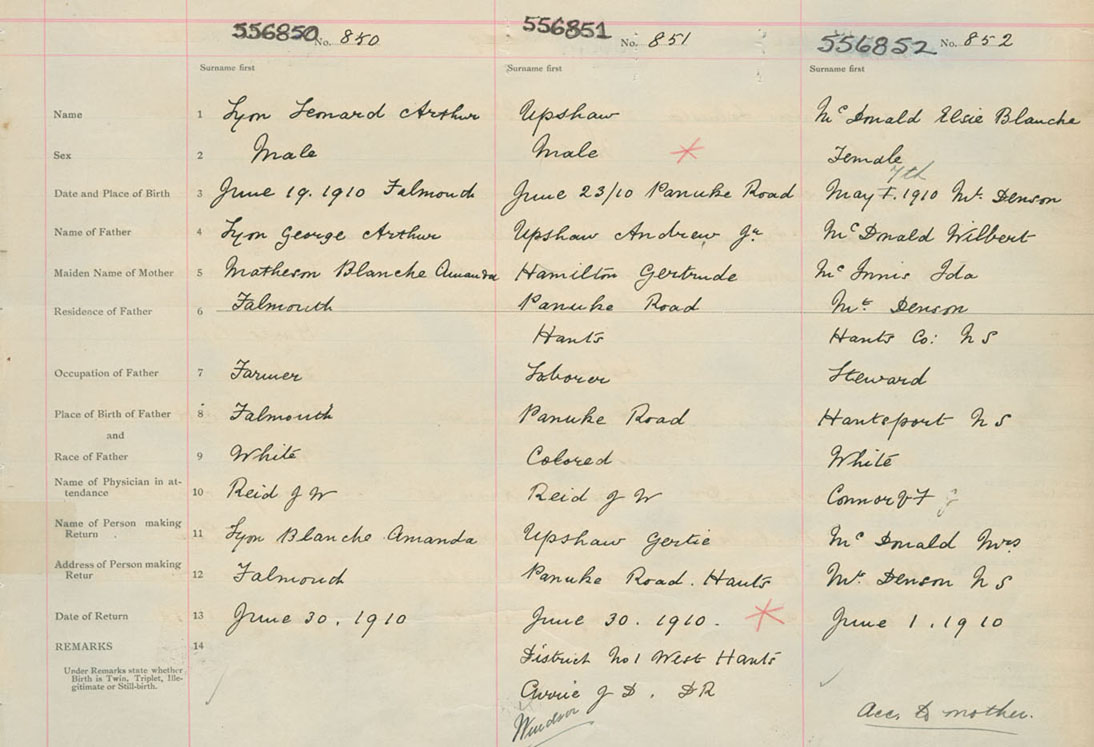 556850 No. 850 556851 No. 851 556852 No. 852
Surname first Surname first Surname first
Name 1 Lyon Leonard Arthur Upshaw McDonald Elsie Blanche
Sex 2 Male Male Female
7th
Date and Place of Birth 3 June 19. 1910 Falmouth June 23/10 Panuke Road May . 1910 Mt. Denson
Name of Father 4 Lyon George Arthur Upshaw Andrew Jr McDonald Wilbert
Maiden Name of Mother 5 Matheson Blanche Amanda Hamilton Gertrude McInnis Ida
Residence of Father 6 Falmouth Panuke Road Mt. Denson
Hants Hants Co: N S
Occupation of Father 7 Farmer Laborer Steward
Place of Birth of Father 8 Falmouth Panuke Road Hantsport N S
and
Race of Father 9 White Colored White
Name of Physician in at-
tendance 10 Reid J W Reid J W Connor
Name of Person making
Return 11 Lyon Blanche Amanda Upshaw Gertie McDonald Mrs
Address of Person making
Retur 12 Falmouth Panuke Road. Hants Mt. Denson N S
Date of Return 13 June 30. 1910 June 30. 1910. June 1. 1910
REMARKS 14
District No 1 West Hants
Under Remarks state whether
Birth is Twin, Triplet, Ille-
gitimate or Still-birth.
Currie J D. DR
Windsor
Acc. to mother.